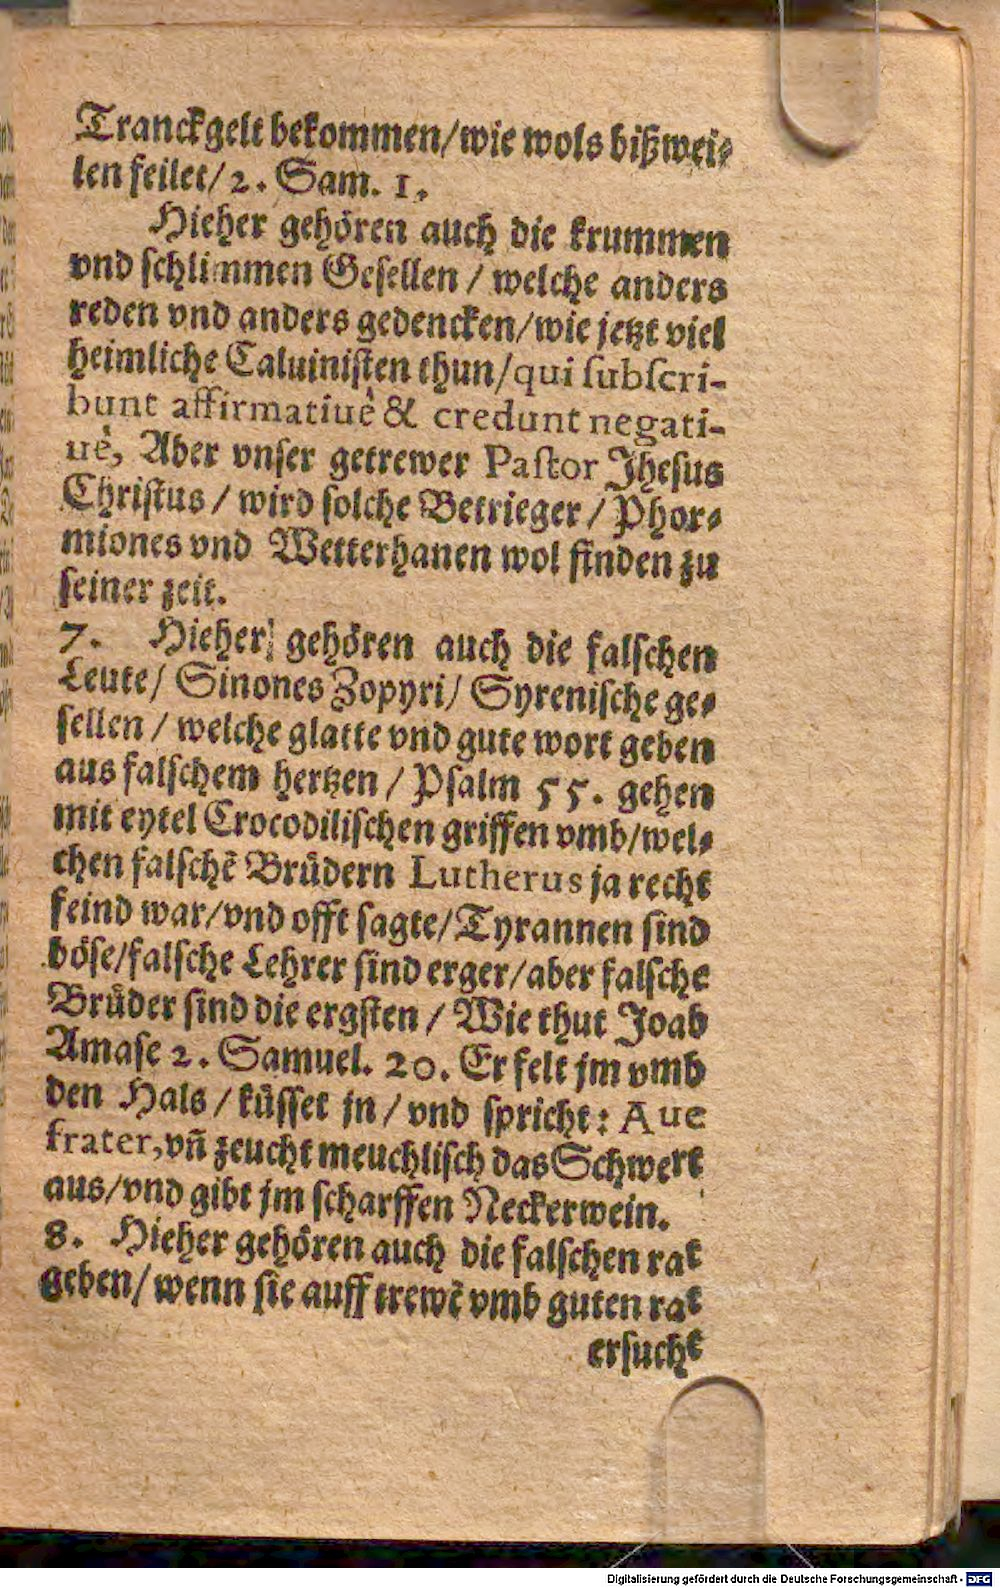 Tranckgelt bekommen/wie wols bißwei-
len feilet/2. Sam. 1.
Hieher gehören auch die krummen
vnd schlimmen Gesellen / welche anders
reden vnd anders gedencken/wie jetzt viel
heimliche Caluinisten thun/qui subscri-
bunt affirmatiuè & credunt negati-
uè, Aber vnser getrewer Pastor Jhesus
Christus / wird solche Betrieger / Phor-
miones vnd Wetterhanen wol finden zu
seiner zeit.
7. Hieher gehören auch die falschen
Leute/ Sinones Zopyri/ Syrenische ge-
sellen / welche glatte vnd gute wort geben
aus falschem hertzen / Psalm 55. gehen
mit eytel Crocodilischen griffen vmb/wel-
chen falschẽ Brüdern Lutherus ja recht
feind war/vnd offt sagte/Tyrannen sind
böse/falsche Lehrer sind erger/aber falsche
Brüder sind die ergsten / Wie thut Joab
Amase 2. Samuel. 20. Er felt jm vmb
den Hals / küsset jn / vnd spricht: Aue
frater,vñ zeucht meuchlisch das Schwert
aus/vnd gibt jm scharffen Neckerwein.
8. Hieher gehören auch die falschen rat
geben/wenn sie auff trewẽ vmb guten rat
ersucht
Digitalisierung gefördert durch die Deutsche Forschungsgemeinschaft - DFG